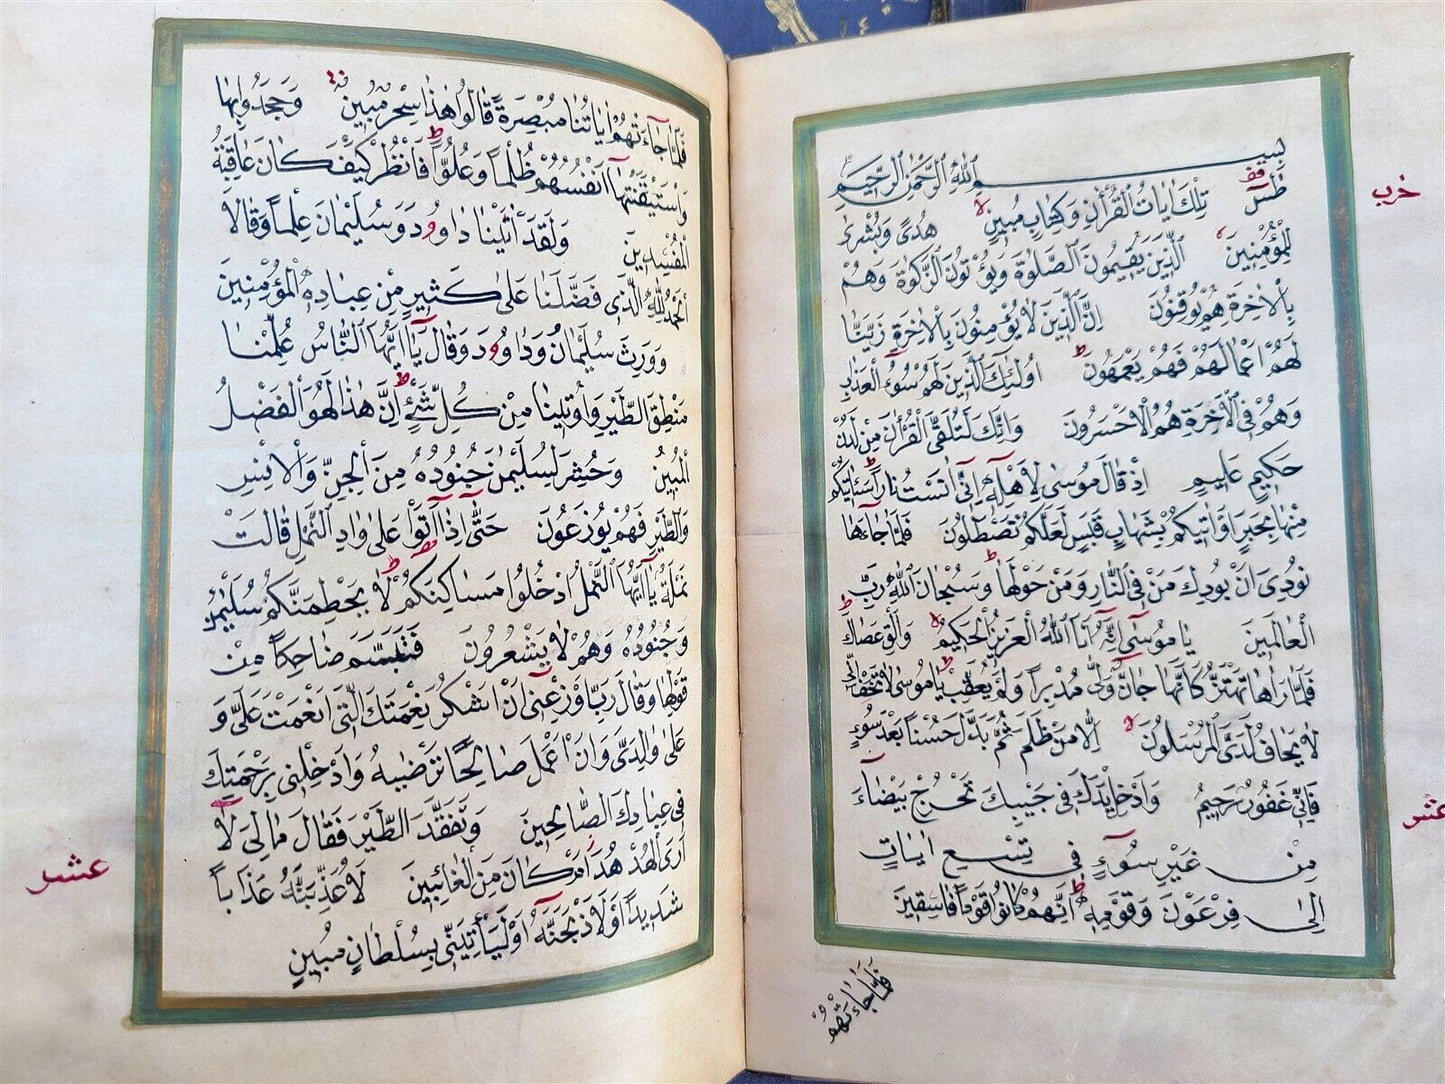 بِسْمِ اللهِ الرَّحْمٰنِ الرَّحِيمِ
طٰسٓ تِلْكَ اٰيَاتُ الْقُرْاٰنِ وَكِتَابٍ مُبِينٍ هُدًى وَبُشْرٰى
لِلْمُؤْمِنِينَ الَّذِينَ يُقِيمُونَ الصَّلٰوةَ وَيُؤْتُونَ الزَّكٰوةَ وَهُمْ
بِالْاٰخِرَةِ هُمْ يُوقِنُونَ اِنَّ الَّذِينَ لَا يُؤْمِنُونَ بِالْاٰخِرَةِ زَيَّنَّا
لَهُمْ اَعْمَالَهُمْ فَهُمْ يَعْمَهُونَ اُولٰئِكَ الَّذِينَ لَهُمْ سُوٓءُ الْعَذَابِ
وَهُمْ فِى الْاٰخِرَةِ هُمُ الْاَخْسَرُونَ وَاِنَّكَ لَتُلَقَّى الْقُرْاٰنَ مِنْ لَدُنْ
حَكِيمٍ عَلِيمٍ اِذْ قَالَ مُوسٰى لِاَهْلِهٓ اِنّٓى اٰنَسْتُ نَارًا سَاٰتِيكُمْ
مِنْهَا بِخَبَرٍ اَوْ اٰتِيكُمْ بِشِهَابٍ قَبَسٍ لَعَلَّكُمْ تَصْطَلُونَ فَلَمَّا جَاءَهَا
نُودِىَ اَنْ بُورِكَ مَنْ فِى النَّارِ وَمَنْ حَوْلَهَا وَسُبْحَانَ اللهِ رَبِّ
الْعَالَمِينَ يَا مُوسٰٓى اِنَّهٓ اَنَا اللهُ الْعَزِيزُ الْحَكِيمُ وَاَلْقِ عَصَاكَ
فَلَمَّا رَاٰهَا تَهْتَزُّ كَاَنَّهَا جَانٌّ وَلّٰى مُدْبِرًا وَلَمْ يُعَقِّبْ يَا مُوسٰى لَا تَخَفْ اِنّٖى
لَا يَخَافُ لَدَىَّ الْمُرْسَلُونَ اِلَّا مَنْ ظَلَمَ ثُمَّ بَدَّلَ حُسْنًا بَعْدَ سُوٓءٍ
فَاِنّٖى غَفُورٌ رَحِيمٌ وَاَدْخِلْ يَدَكَ فِى جَيْبِكَ تَخْرُجْ بَيْضَٓاءَ
مِنْ غَيْرِ سُوٓءٍ فِى تِسْعِ اٰيَاتٍ
اِلٰى فِرْعَوْنَ وَقَوْمِهٖ اِنَّهُمْ كَانُوا قَوْمًا فَاسِقِينَ
فَلَمَّا جَٓاءَتْهُمْ
حزب
عشر
فَلَمَّا جَٓاءَتْهُمْ اٰيَاتُنَا مُبْصِرَةً قَالُوا هٰذَا سِحْرٌ مُبِينٌ وَجَحَدُوا بِهَا
وَاسْتَيْقَنَتْهَٓا اَنْفُسُهُمْ ظُلْمًا وَعُلُوًّا فَانْظُرْ كَيْفَ كَانَ عَاقِبَةُ
الْمُفْسِدِينَ وَلَقَدْ اٰتَيْنَا دَاوُودَ وَسُلَيْمَانَ عِلْمًا وَقَالَا
الْحَمْدُ لِلّٰهِ الَّذِى فَضَّلَنَا عَلٰى كَثِيرٍ مِنْ عِبَادِهِ الْمُؤْمِنِينَ
وَوَرِثَ سُلَيْمَانُ دَاوُودَ وَقَالَ يَٓا اَيُّهَا النَّاسُ عُلِّمْنَا
مَنْطِقَ الطَّيْرِ وَاُوتِينَا مِنْ كُلِّ شَيْءٍ اِنَّ هٰذَا لَهُوَ الْفَضْلُ
الْمُبِينُ وَحُشِرَ لِسُلَيْمٰنَ جُنُودُهُ مِنَ الْجِنِّ وَالْاِنْسِ
وَالطَّيْرِ فَهُمْ يُوزَعُونَ حَتّٰٓى اِذَٓا اَتَوْا عَلٰى وَادِ النَّمْلِ قَالَتْ
نَمْلَةٌ يَٓا اَيُّهَا النَّمْلُ ادْخُلُوا مَسَاكِنَكُمْ لَا يَحْطِمَنَّكُمْ سُلَيْمٰنُ
وَجُنُودُهُ وَهُمْ لَا يَشْعُرُونَ فَتَبَسَّمَ ضَاحِكًا مِنْ
قَوْلِهَا وَقَالَ رَبِّ اَوْزِعْنِى اَنْ اَشْكُرَ نِعْمَتَكَ الَّتِى اَنْعَمْتَ عَلَىَّ وَ
عَلٰى وَالِدَىَّ وَاَنْ اَعْمَلَ صَالِحًا تَرْضٰيهُ وَاَدْخِلْنِى بِرَحْمَتِكَ
فِى عِبَادِكَ الصَّالِحِينَ وَتَفَقَّدَ الطَّيْرَ فَقَالَ مَا لِىَ لَٓا
اَرَى الْهُدْهُدَ اَمْ كَانَ مِنَ الْغَٓائِبِينَ لَاُعَذِّبَنَّهُ عَذَابًا
شَدِيدًا اَوْ لَاَذْبَحَنَّهُٓ اَوْ لَيَأْتِيَنّٖى بِسُلْطَانٍ مُبِينٍ
عشر